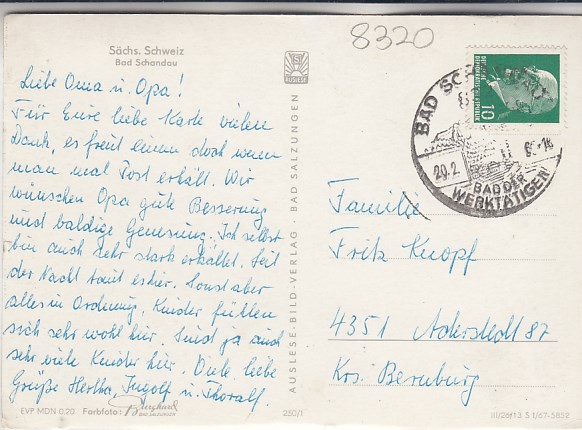 8320
Sächs. Schweiz
Bad Schandau
Liebe Oma u. Opa!
Für Eure liebe Karte vielen
Dank, es freut einem doch wenn
man mal Post erhält. Wir
wünschen Opa gute Besserung
und baldige Genesung. Ich selbst
bin auch sehr stark erkältet. Seit
der Nacht taut es hier. Sonst aber
alles in Ordnung, Kinder fühlen
sich sehr wohl hier. Sind ja auch
sehr viele Kinder hier. Viele liebe
Grüße Hertha, Ingolf u. Thoralf.
EVP MDN 0,20 Farbfoto: Burghard
BAD SALZUNGEN
250/1
AUSLESE-BILD-VERLAG · BAD SALZUNGEN
DEUTSCHE
DEMOKRATISCHE REPUBLIK
10
BAD
20.2
-16
BAD DER
WERKTÄTIGEN
Familie
Fritz Knopf
4351 Aderstedt 87
Krs. Bernburg
III/26/13 S 1/67-5852